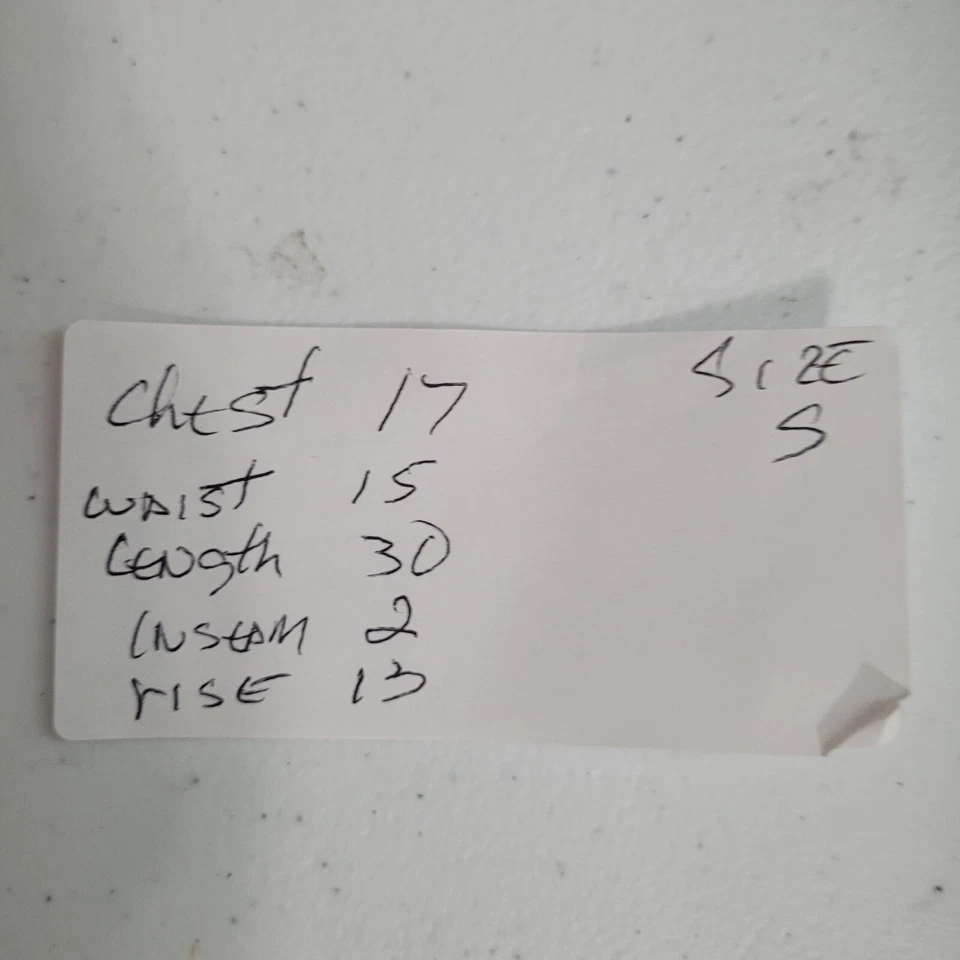 Chest 17
WAIST 15
LENgth 30
INSEAM 2
rISE 13
SIZE
S